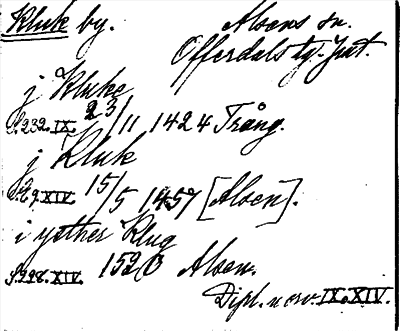 Kluk by. Alsens sn.
Offerdals tg. Jmt.
j Kluke
S.232.IX. 23/11 1424 Trång.
j Kluk
S.89.XIV. 15/5 1457 [Alsen].
i ysther Klug
S.228.XIV. 1520 Alsen.
Dipl. norv. IX. XIV.